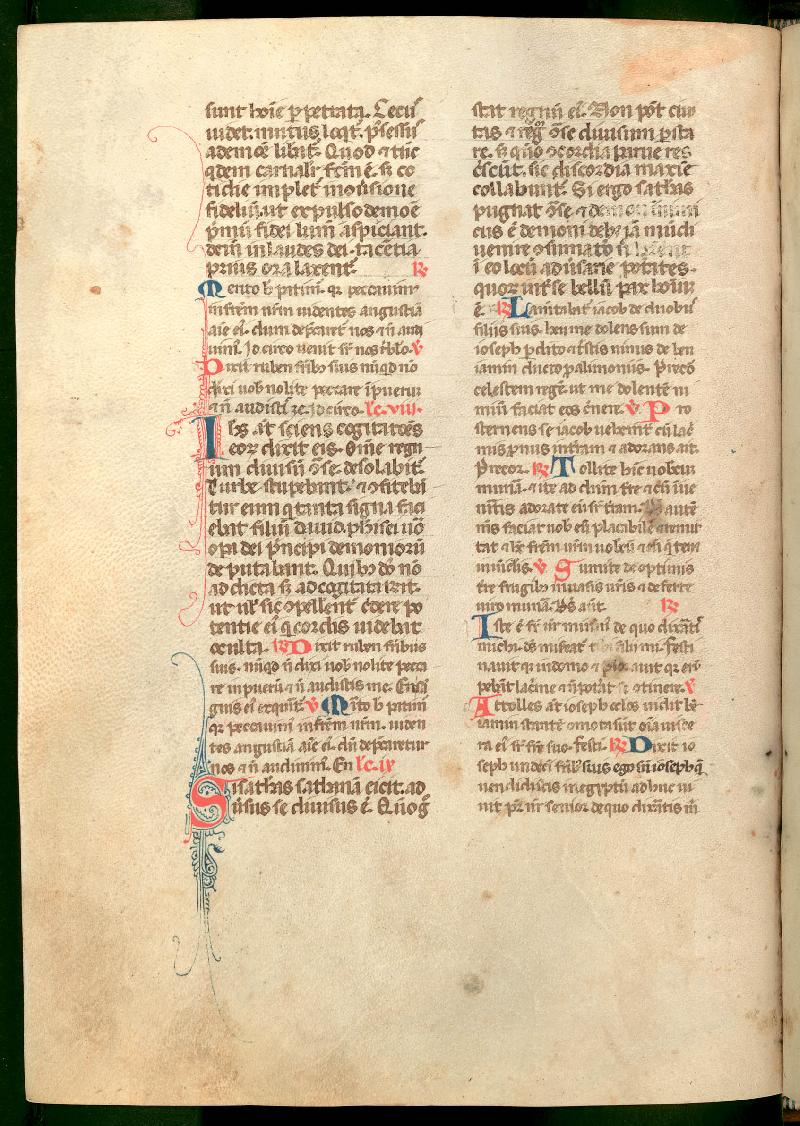 sunt hoīe ꝑpetrata. Cecuſ
uidet. mutus loq̄t. p̄sessuſ
a demōe libāt̄. Quod ⁊ tūc
qdem carnalit̄ fcm̄ ē. s; co
tidie implet̄ in ꝯuersione
fideliū. ut expulso demōe
p̄mū fidei lum̄ aspiciant.
dein̄ in laudes dei. tacētia
prius ora laxent̄. ℟
Merito h̄ patim̄. qr peccauim̄
in frēm nrm̄ uidentes angustiā
aīe eī. dum dep̄caret̄ nos ⁊ ñ audi
uim̄. Idcirco uenit sr̄ nos t̄blo. ℣
Dixit ruben frīb; suis nūqd nō
dixi uob̄ nolite peccare ī puerū
⁊ ñ audistis ꝛc. Idcirco. lc. viii.
Ihs at̄ sciens cogitatōes
eoꝝ dixit eis. Om̄e regnū
in se diuisū ꝯ se. desolabit̄.
Turbe stupebant ⁊ ꝯfitebā
tur eum q tanta signa faci
ebat filiū dauid. pharisei uō
opa dei p̄ncipi demonioꝝ
deputabant. Quib; dn̄s nō
ad dicta s; ad cogitata rn̄dit.
ut ul̄ sic ꝯpellent̄ c̄dere po
tentie eī q cordis uidebat
occulta. ℟ Dixit ruben frībus
suis. nūqd ñ dixi uob̄ nolite pecca
re in puerū ⁊ ñ audistis me. En sā
guis eī exq̄rit̄. ℣ M̄ito h̄ patim̄
qr peccauim̄ in frēm nrm̄. uiden
tes angustiā aīe eī. dū dep̄caretur
nos ⁊ ñ audiuim̄. En lc. ix
Si sathās sathanā eicit. ad
usus se diuisus ē. Qūo g̊
stat regnū eī. Non pōt ciui
tas ⁊ regnū ꝯ se diuisum ꝑsta
re. s; qūo ꝯcordia parue res
c̄scūt. sic discordia maxīe
collabunt̄. Si ergo sathās
pugnat ꝯ se ⁊ demon inimi
cus ē demoni
uenire ꝯsumatō
ī eo locū aduersarie potestates.
quoꝝ int̄ se bellū pax hoīuʒ
ē. ℟ Lamtabat̄ iacob de duobꝰ
filiis suis. heu me dolens sum de
ioseph ꝑdito ⁊ t̄stis nimis de ben
iamin ducto ꝓ alimoniis. Precor
celestem regē ut me dolentē ni
miū faciat eos c̄nere. ℣ Pro
sternens se iacob uehemt̄ cū lac̄
mis pronus in terram ⁊ adorans ait.
Precor. ℟ Tollite hinc uobcū
munā. ⁊ ite ad dnm̄ t̄re ⁊ cū īue
n̄itis adorate eū sr̄ t̄ram. Ds autē
ms̄ faciat uob̄ eū placabilē ⁊ remit
tat ⁊ hc frēm urm̄ uobcū ⁊ eū q tem
in uiclis. ℣ Sumite de optimis
t̄re frugib; in uasis ur̄is ⁊ deferte
uiro munā. Ds aūt. ℟
Iste ē fr̄ ur̄ minimꝰ de quo dixāti
michi. ds miseāt̄ t̄ fili mi. Festi
nauit q in domo ⁊ plorauit qr erū
pebāt lac̄me ⁊ ñ potat se ꝯtinere. ℣
Attolles at̄ ioseph oclos uidit ben
iamin stantē ⁊ ꝯmota sūt oīa uisce
ra eī sr̄ fr̄e suo. Festī. ℟ Dixit io
seph undecī frīb; suis ego sū ioseph q̄
uendidistis in egyptū adhuc ui
uit pr̄ ur̄ senior de quo dixātis m̄